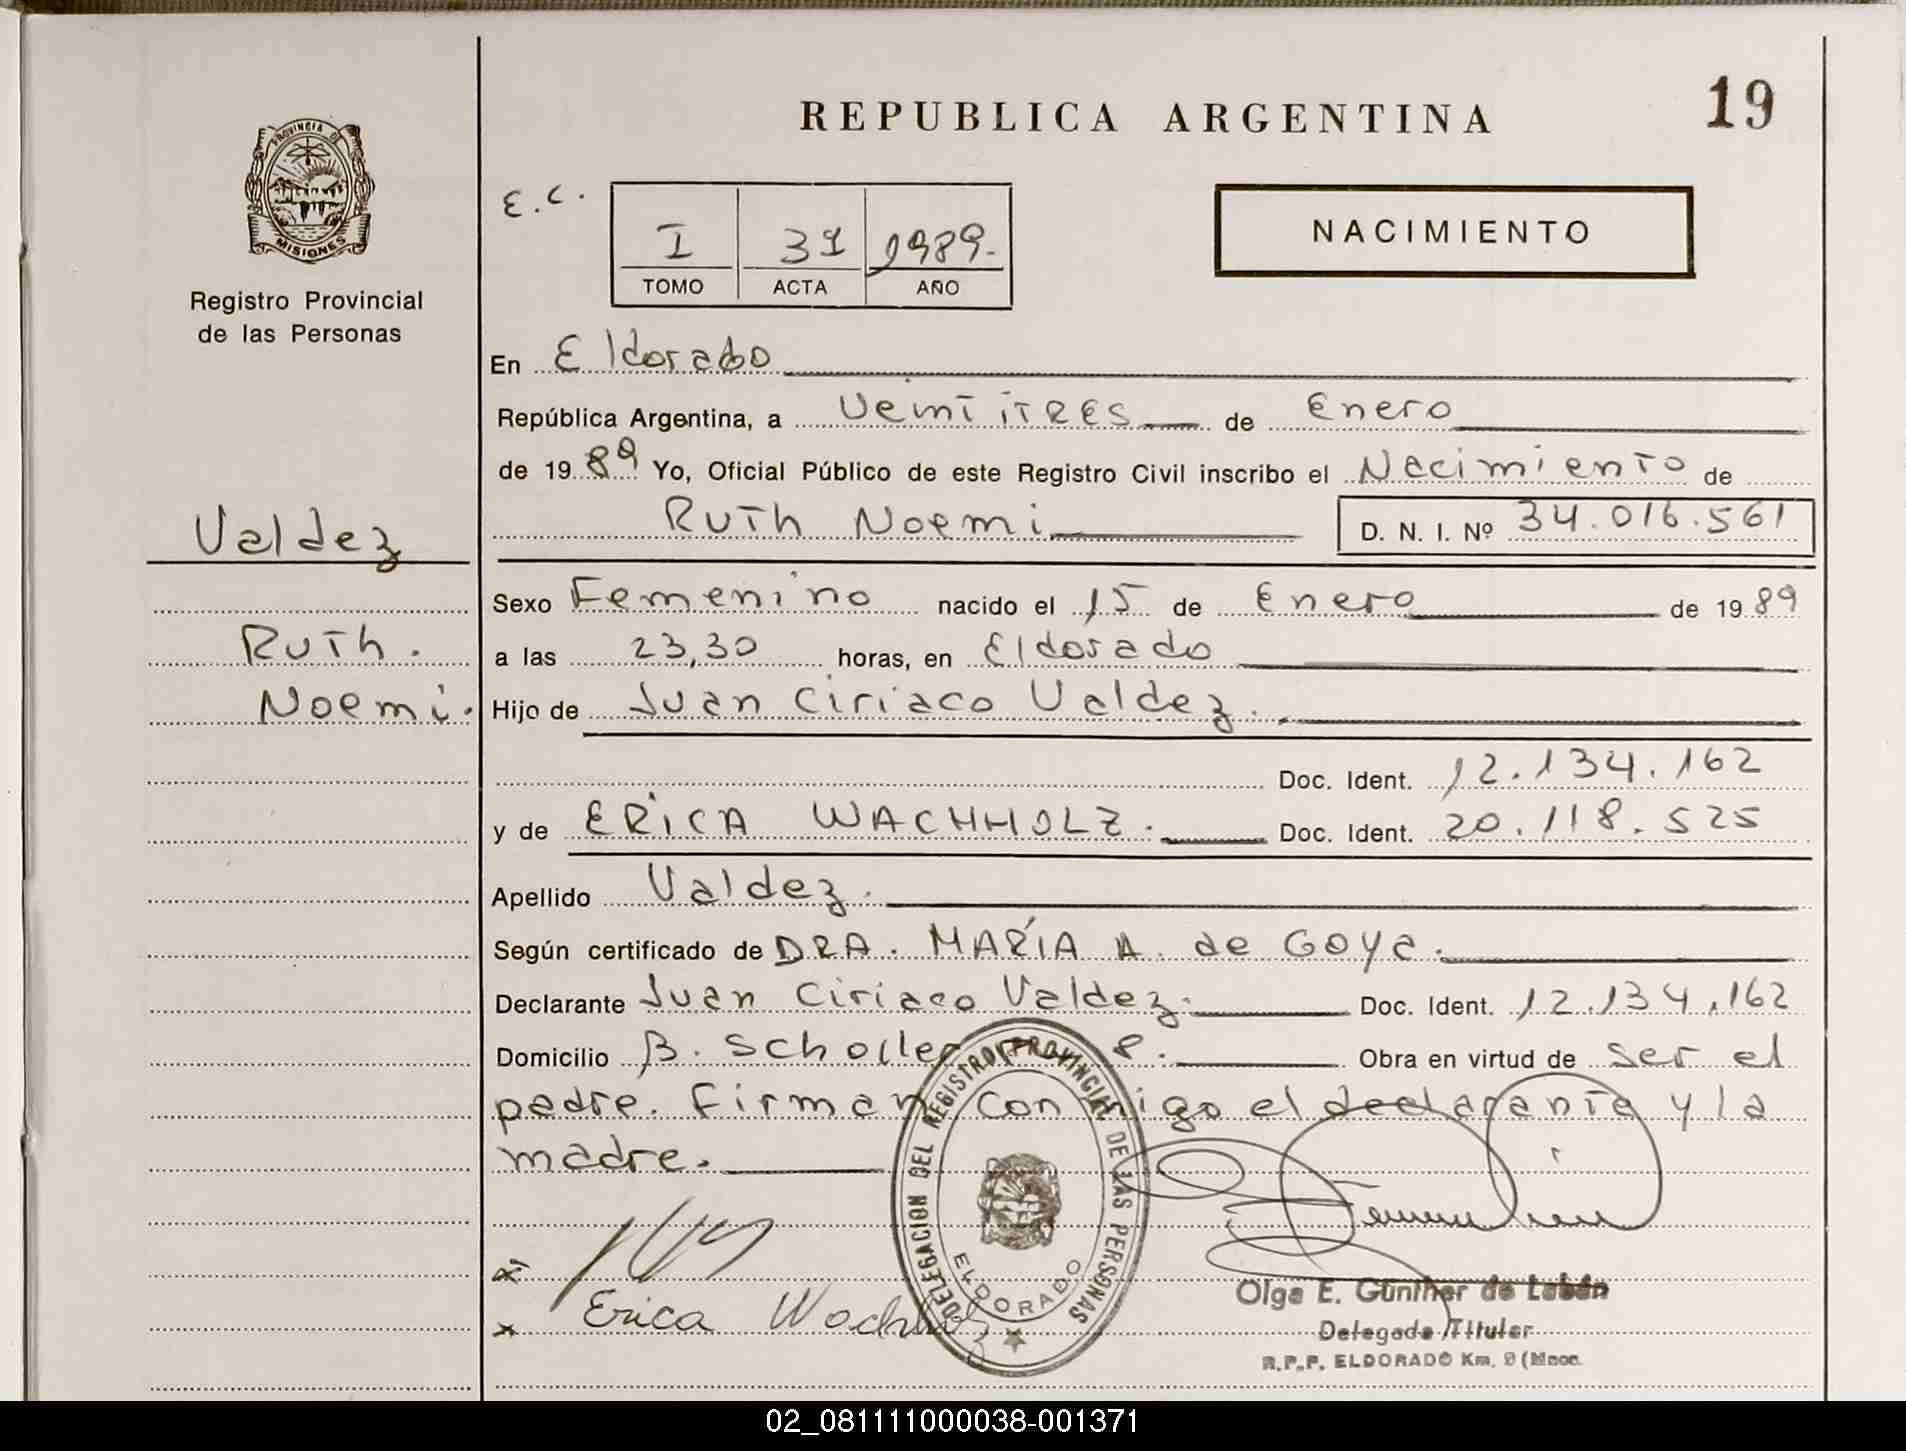 REPUBLICA ARGENTINA
19
PROVINCIA DE
MISIONES
Registro Provincial
de las Personas
E.C.
I 31 1989.
TOMO ACTA AÑO
NACIMIENTO
En Eldorado
República Argentina, a Veintitres de Enero
de 1989 Yo, Oficial Público de este Registro Civil inscribo el Nacimiento de
Ruth Noemi D. N. I. Nº 34.016.561
Valdez
Ruth.
Noemi.
Sexo Femenino nacido el 15 de Enero de 1989
a las 23,30 horas, en Eldorado
Hijo de Juan Ciriaco Valdez.
Doc. Ident. 12.134.162
y de ERICA WACHHOLZ. Doc. Ident. 20.118.525
Apellido Valdez.
Según certificado de DRA. MARÍA A. de Goya.
Declarante Juan Ciriaco Valdez. Doc. Ident. 12.134.162
Domicilio B. Scholler 8. Obra en virtud de ser el
padre. Firman conmigo el declarante y la
madre.
DELEGACION DEL REGISTRO PROVINCIAL DE LAS PERSONAS
ELDORADO
x
x Erica Wachholz
Olga E. Günther de Labán
Delegada Titular
R.P.P. ELDORADO Km. 9 (Mnes.
02_081111000038-001371